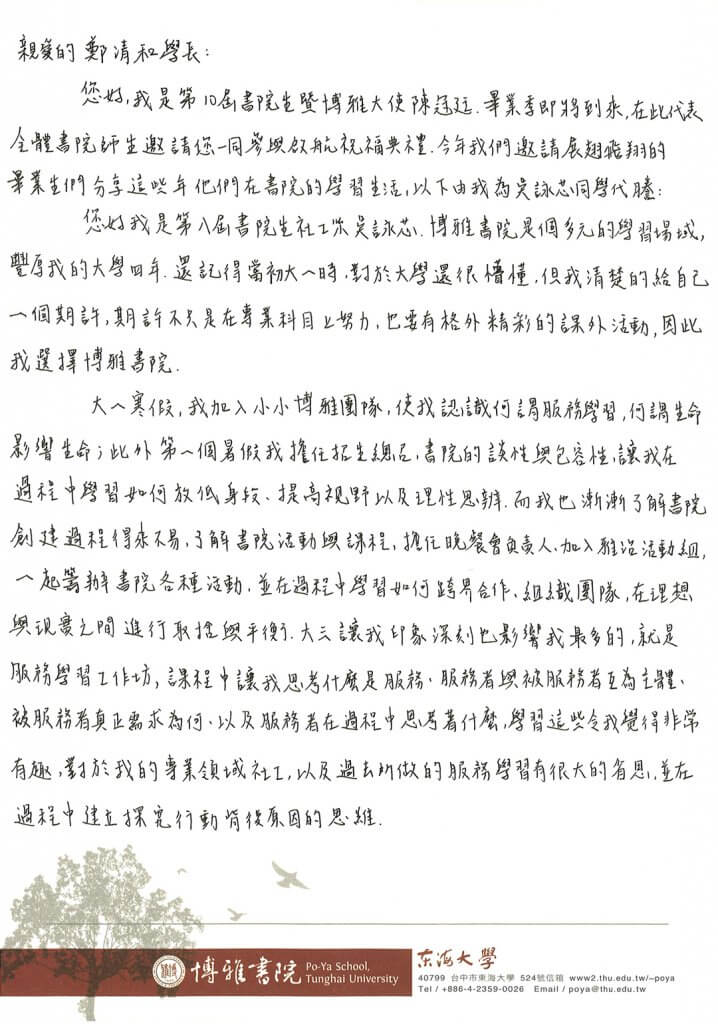 親愛的鄭清和學長:
您好,我是第10屆書院生暨博雅大使陳冠廷.畢業季即將到來,在此代表
全體書院師生邀請您一同參與啟航祝福典禮.今年我們邀請展翅飛翔的
畢業生們分享這些年他們在書院的學習生活,以下由我為吳詠芯同學代謄:
您好我是第八屆書院生社工系吳詠芯.博雅書院是個多元的學習場域,
豐厚我的大學四年.還記得當初大一時,對於大學還很懵懂,但我清楚的給自己
一個期許,期許不只是在專業科目上努力,也要有格外精彩的課外活動,因此
我選擇博雅書院.
大一寒假,我加入小小博雅團隊,使我認識何謂服務學習,何謂生命
影響生命;此外第一個暑假我擔任招生總召,書院的談性與包容性,讓我在
過程中學習如何放低身段、提高視野以及理性思辨.而我也漸漸了解書院
創建過程得來不易,了解書院活動與課程,擔任晚餐會負責人、加入雅活活動組,
一起籌辦書院各種活動,並在過程中學習如何跨界合作、組織團隊,在理想
與現實之間進行取捨與平衡.大三讓我印象深刻也影響我最多的,就是
服務學習工作坊,課程中讓我思考什麼是服務、服務者與被服務者互為主體、
被服務者真正需求為何、以及服務者在過程中思考著什麼,學習這些令我覺得非常
有趣,對於我的專業領域社工,以及過去所做的服務學習有很大的省思,並在
過程中建立探究行動背後原因的思維.
博雅書院 Po-Ya School,
Tunghai University
東海大學
40799 台中市東海大學 524號信箱 www2.thu.edu.tw/~poya
Tel / +886-4-2359-0026 Email / poya@thu.edu.tw